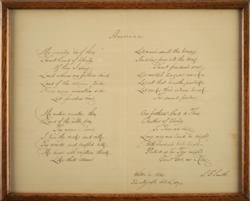 America
My country 'tis of thee,
Sweet land of liberty,
Of thee I sing;
Land where my fathers died,
Land of the pilgrims' pride,
From every mountain side
Let freedom ring.
My native country, thee,
Land of the noble free,
Thy name I love;
I love thy rocks and rills,
Thy woods and templed hills,
My heart with rapture thrills
Like that above.
Let music swell the breeze,
And ring from all the trees
Sweet freedom's song;
Let mortal tongues awake,
Let all that breathe partake,
Let rocks their silence break,
The sound prolong.
Our fathers' God, to Thee,
Author of liberty,
To Thee we sing;
Long may our land be bright
With freedom's holy light,
Protect us by Thy might,
Great God, our King.
S. F. Smith